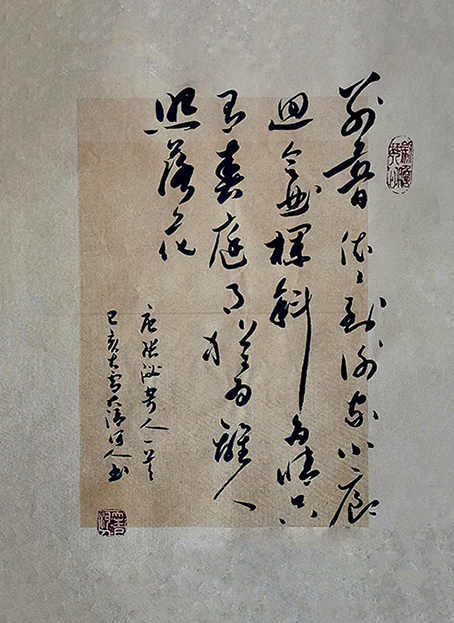 别夢依〻到谢家小廊
迴合曲欄斜多情只
有春庭月犹为離人
照落花
唐张泌寄人一首
己亥大雪大清河人书